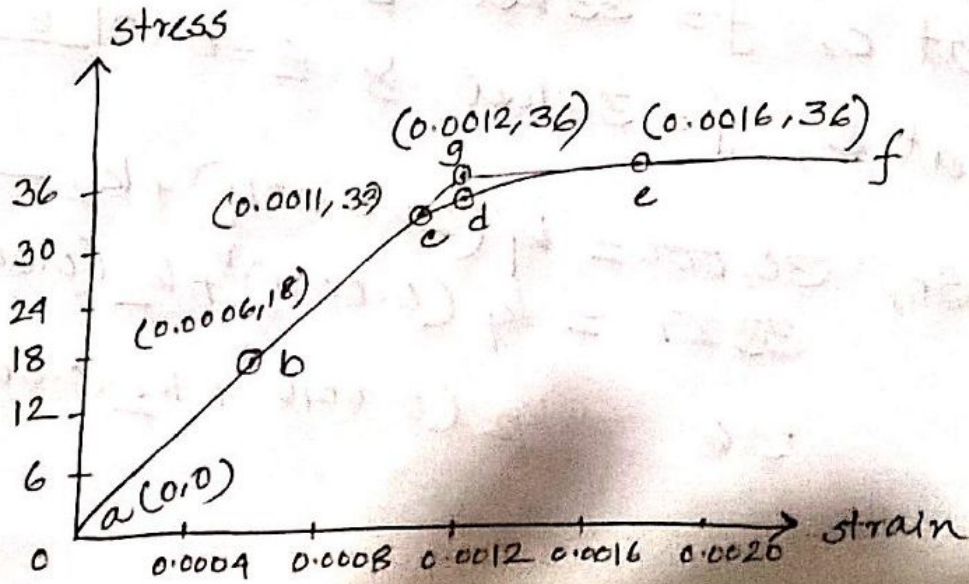 stress
(0.0012, 36) (0.0016, 36)
g
36
(0.0011, 33)
c d e f
30
24
(0.0006, 18)
18
b
12
6
a (0,0)
0
0.0004 0.0008 0.0012 0.0016 0.0020 strain